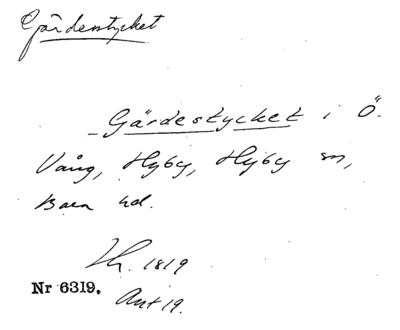 Gärdestycket
Gärdestycket i Ö.
Vång, Hyby, Hyby sn,
Bara hd.
Lh. 1819
Nr 6319.
Akt 19.